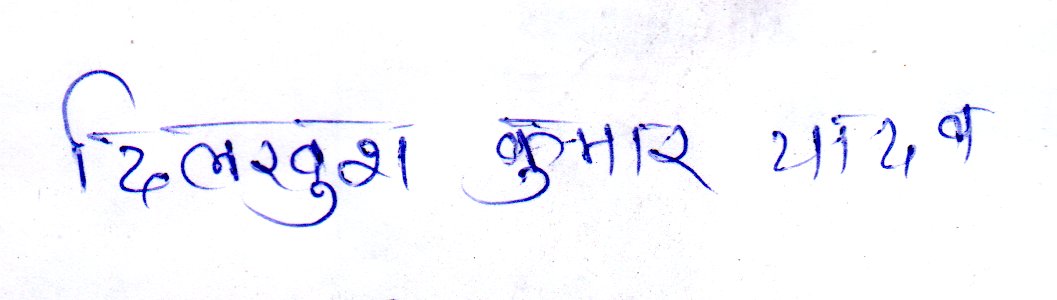 दिलखुश कुमार यादव